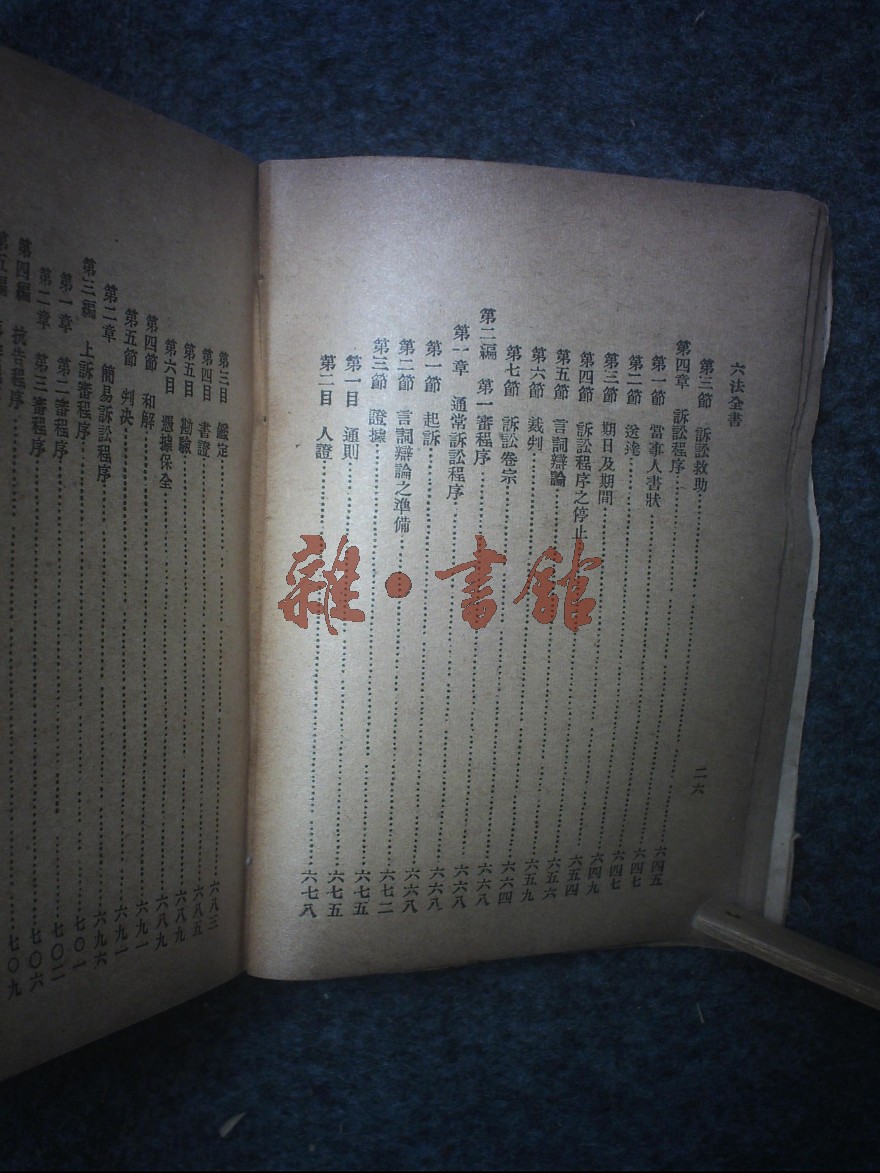 六法全書 二六
第三節 訴訟救助……六四五
第四章 訴訟程序……六四七
第一節 當事人書狀……六四七
第二節 送達……六四九
第三節 期日及期間……六五四
第四節 訴訟程序之停止……六五六
第五節 言詞辯論……六五九
第六節 裁判……六六四
第七節 訴訟卷宗……六六八
第二編 第一審程序……六六八
第一章 通常訴訟程序……六六八
第一節 起訴……六六八
第二節 言詞辯論之準備……六七二
第三節 證據……六七五
第一目 通則……六七五
第二目 人證……六七八
第三目 鑑定……六八三
第四目 書證……六八五
第五目 勘驗……六八九
第六目 證據保全……六八九
第四節 和解……六九一
第五節 判決……六九一
第二章 簡易訴訟程序……六九六
第三編 上訴審程序……七〇一
第一章 第二審程序……七〇二
第二章 第三審程序……七〇六
第四編 抗告程序……七〇九
第五編
雜·書館